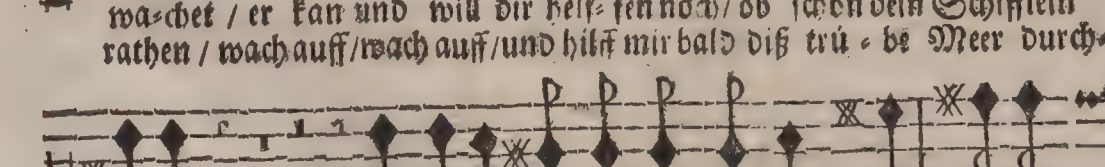 wa⸗chet / er kan und will dir helf⸗ fen noch / ob schon dein Schifflein
rathen / wach auff / wach auff / und hilff mir bald diß trü ⸗ be Meer durch⸗